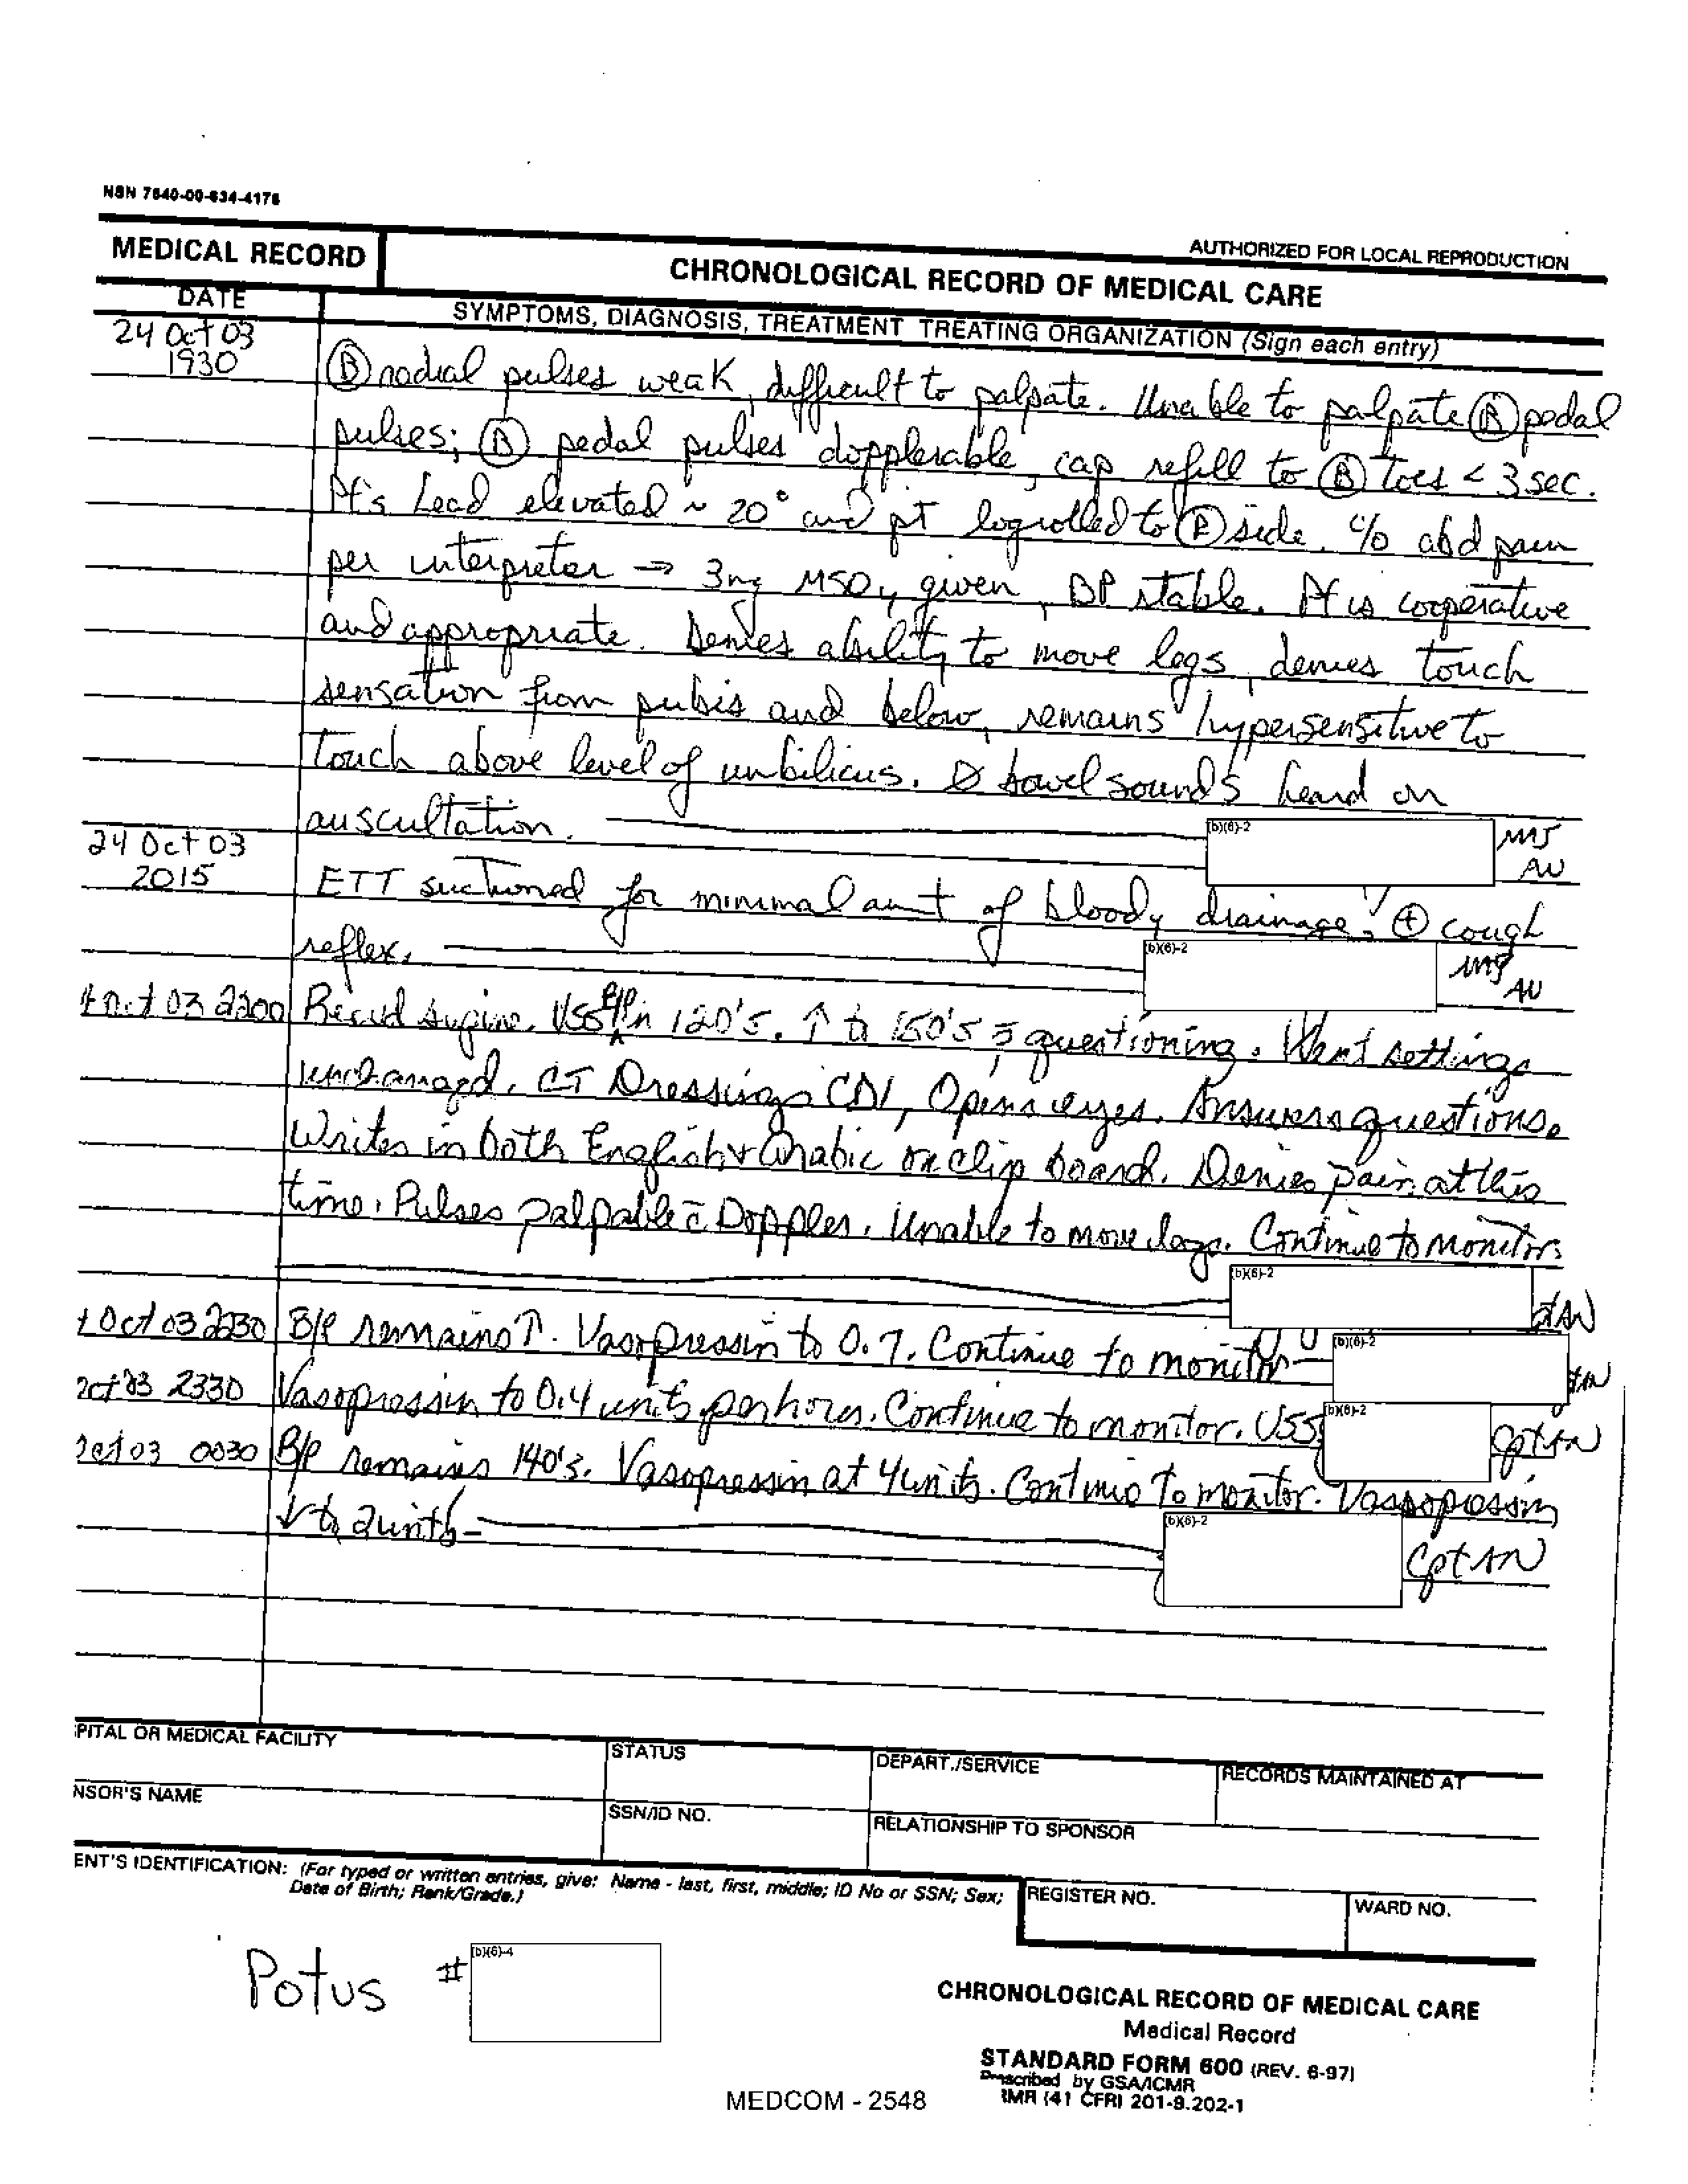 NSN 7540-00-634-4176
AUTHORIZED FOR LOCAL REPRODUCTION
MEDICAL RECORD
CHRONOLOGICAL RECORD OF MEDICAL CARE
DATE
SYMPTOMS, DIAGNOSIS, TREATMENT TREATING ORGANIZATION (Sign each entry)
24 Oct 03
1930
Ⓑ radial pulses weak, difficult to palpate. Unable to palpate Ⓑ pedal
pulses; Ⓑ pedal pulses dopplerable, cap refill to Ⓑ toes < 3 sec.
Pt's head elevated ~ 20° and pt logrolled to Ⓡ side. c/o abd pain
per interpreter → 3mg MSO4 given, BP stable. Pt is cooperative
and appropriate. Denies ability to move legs, denies touch
sensation from pubis and below, remains hypersensitive to
touch above level of umbilicus. Ø bowel sounds heard on
auscultation.
(b)(6)-2
MAJ
AN
24 Oct 03
2015
ETT suctioned for minimal amt of bloody drainage. ⊕ cough
reflex.
(b)(6)-2
MAJ
AN
Oct 03 2200 Recvd supine. VSS B/P in 120's. ↑ to 150's questioning. Vent settings
unchanged. CT Dressings CDI, Opens eyes. Answers questions.
Writes in both English + Arabic on clip board. Denies pain at this
time. Pulses palpable c̄ Doppler. Unable to move legs. Continue to monitor.
(b)(6)-2
Oct 03 2230 B/P remains ↑. Vasopressin to 0.7. Continue to monitor
(b)(6)-2
Oct 03 2330 Vasopressin to 0.4 units per hour. Continue to monitor. VSS
(b)(6)-2
Cpt AN
Oct 03 0030 B/P remains 140's. Vasopressin at 4 units. Continue to monitor. Vasopressin
↓ to 2 units
(b)(6)-2
Cpt AN
PITAL OR MEDICAL FACILITY
STATUS
DEPART./SERVICE
RECORDS MAINTAINED AT
NSOR'S NAME
SSN/ID NO.
RELATIONSHIP TO SPONSOR
ENT'S IDENTIFICATION: (For typed or written entries, give: Name - last, first, middle; ID No or SSN; Sex;
Date of Birth; Rank/Grade.)
REGISTER NO.
WARD NO.
Potus #
(b)(6)-4
CHRONOLOGICAL RECORD OF MEDICAL CARE
Medical Record
STANDARD FORM 600 (REV. 6-97)
Prescribed by GSA/ICMR
IMR (41 CFR) 201-9.202-1
MEDCOM - 2548